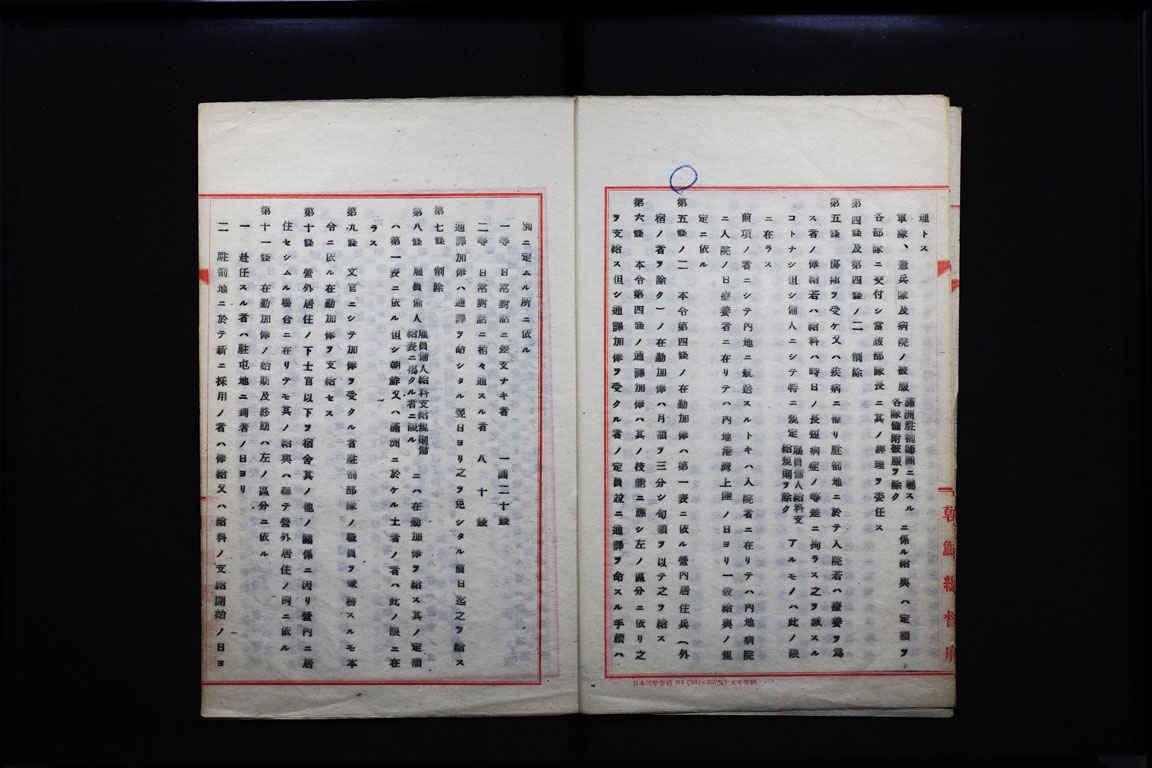 理トス
軍隊、憲兵隊及病院ノ被服
満洲駐劄師団ニ属スル
各隊備附被服ヲ除ク
ニ係ル給與ハ定額ヲ
各部隊ニ交付シ當該部隊長ニ其ノ經理ヲ委任ス
第四條及第四條ノ二 削除
第五條 傷痍ヲ受ケ又ハ疾病ニ罹リ駐劄地ニ於テ入院若ハ療養ヲ爲
ス者ノ俸給若ハ給料ハ時日ノ長短病症ノ等差ニ拘ラス之ヲ減スル
コトナシ但シ傭人ニシテ特ニ規定
雇員傭人給料支
給規則ヲ除ク
アルモノハ此ノ限
ニ在ラス
前項ノ者ニシテ内地ニ航送スルトキハ入院者ニ在リテハ内地病院
ニ入院ノ日療養者ニ在リテハ内地港灣上陸ノ日ヨリ一般給與ノ規
定ニ依ル
第五條ノ二 本令第四條ノ在勤加俸ハ第一表ニ依ル營内居住兵(外
宿ノ者ヲ除ク)ノ在勤加俸ハ月額ヲ三分シ旬額ヲ以テ之ヲ給ス
第六條 本令第四條ノ通譯加俸ハ其ノ技能ニ應シ左ノ區分ニ依リ之
ヲ支給ス但シ通譯加俸ヲ受クル者ノ定員竝ニ通譯ヲ命スル手續ハ
朝鮮總督府
別ニ定ムル所ニ依ル
一等 日常對話ニ差支ナキ者 一圓二十錢
二等 日常對話ニ稍々通スル者 八十錢
通譯加俸ハ通譯ヲ命シタル翌日ヨリ之ヲ免シタル前日迄之ヲ給ス
第七條 削除
第八條 雇員傭人
雇員傭人給料支給規則備
給表ニ掲クル者ニ限ル
ニハ在勤加俸ヲ給ス其ノ定額
ハ第一表ニ依ル但シ朝鮮又ハ滿洲ニ於ケル土着ノ者ハ此ノ限ニ在
ラス
第九條 文官ニシテ加俸ヲ受クル者駐劄部隊ノ職員ヲ兼務スルモ本
令ニ依ル在勤加俸ヲ支給セス
第十條 營外居住ノ下士官以下ヲ宿舍其ノ他ノ關係ニ因リ營内ニ居
住セシムル場合ニ在リテモ其ノ給與ハ總テ營外居住ノ例ニ依ル
第十一條 在勤加俸ノ始期及終期ハ左ノ區分ニ依ル
一 赴任スル者ハ駐屯地ニ到著ノ日ヨリ
二 駐劄地ニ於テ新ニ採用ノ者ハ俸給又ハ給料ノ支給開始ノ日ヨ